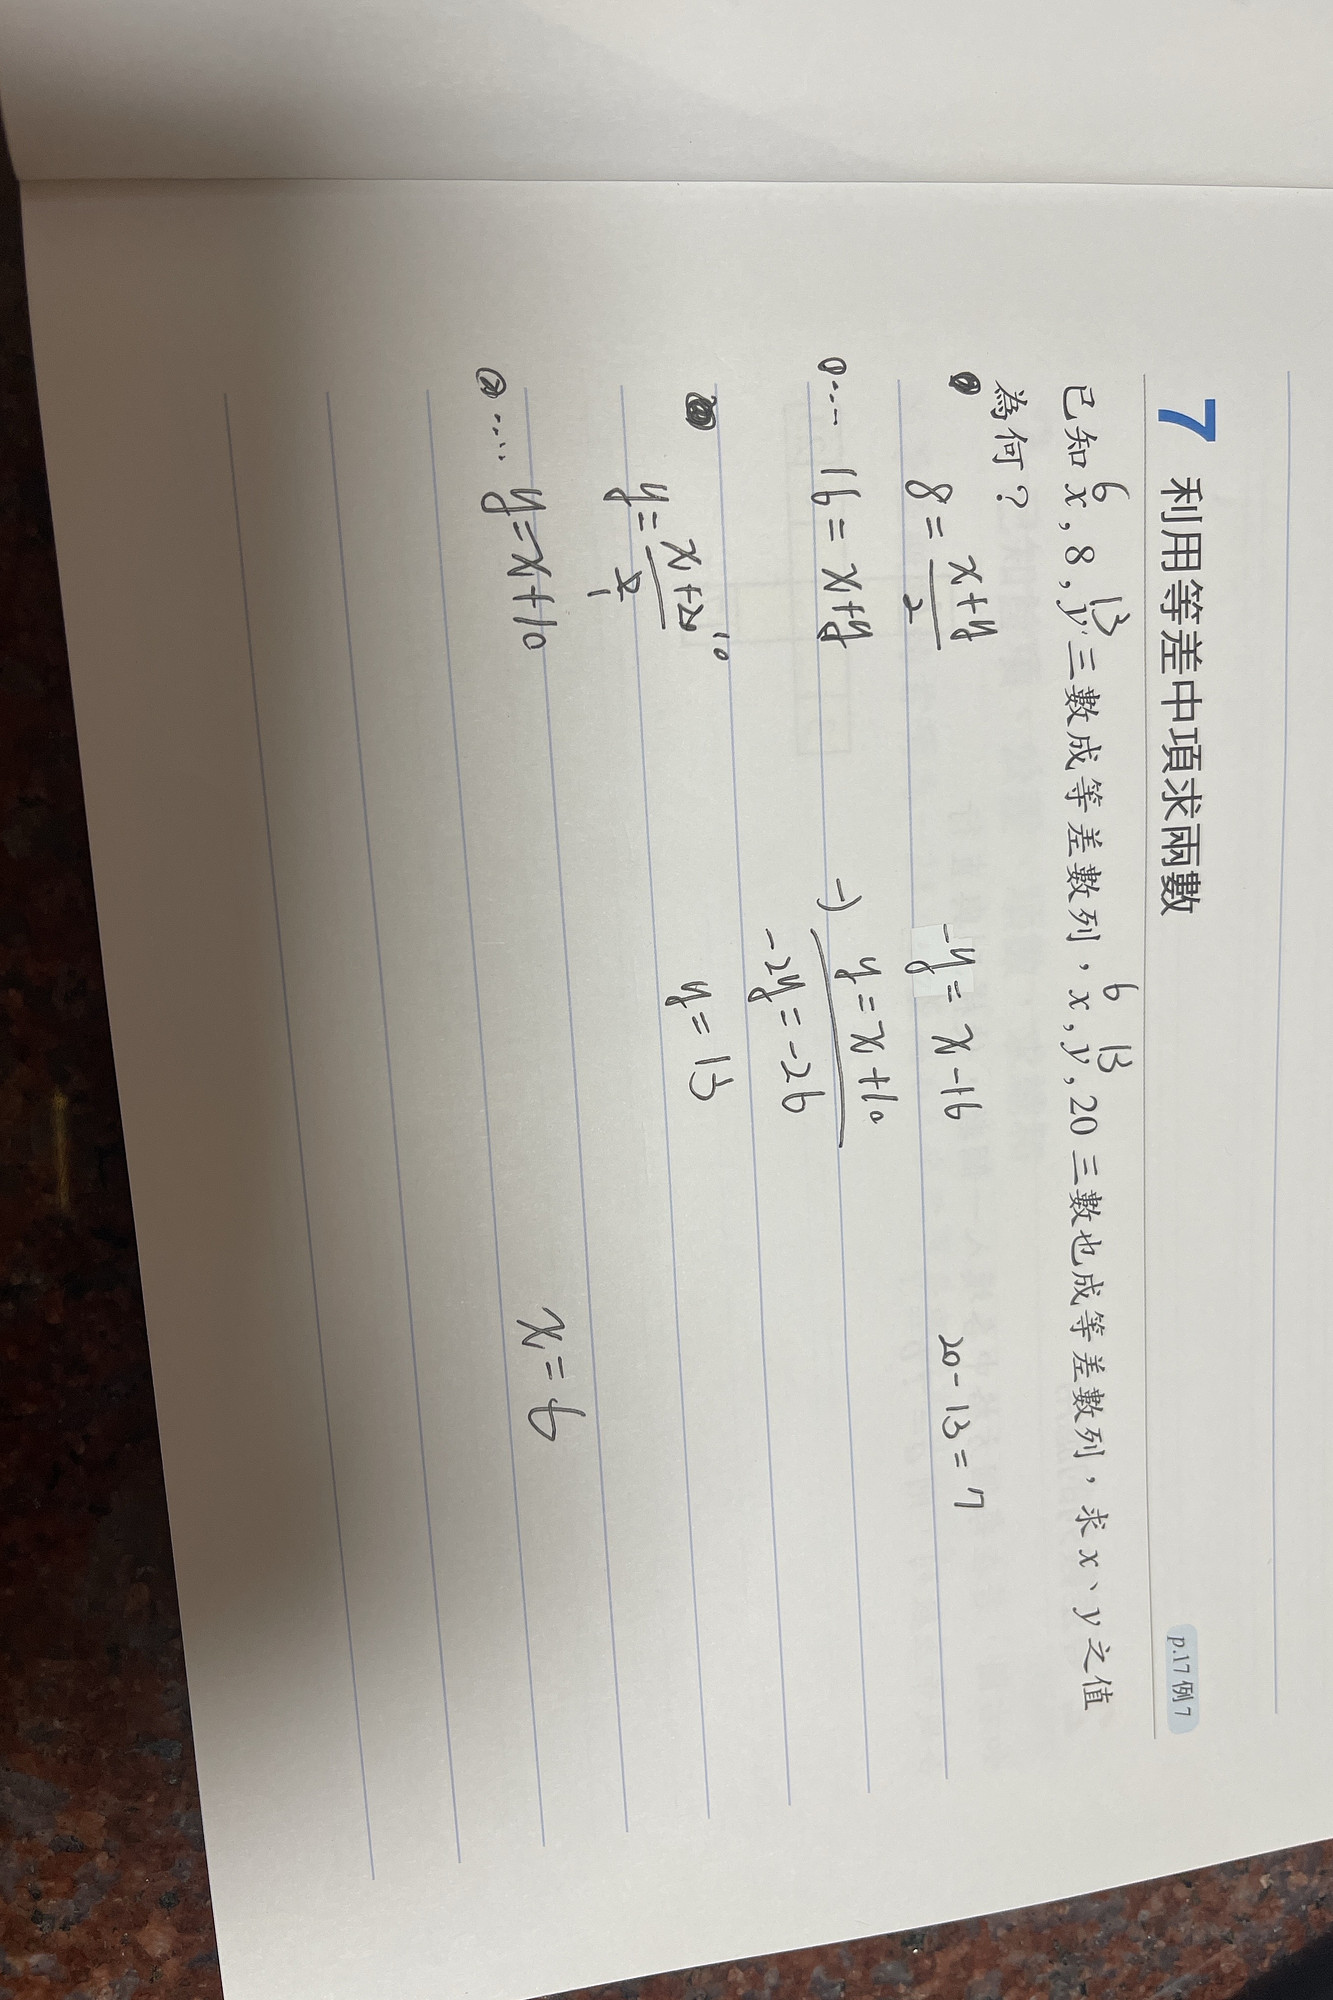 7 利用等差中項求兩數
p.17 例 7
6 13 6 13
已知 x , 8 , y 三數成等差數列，x , y , 20 三數也成等差數列，求 x、y 之值
為何？
8 = x+y / 2
-y = x - 16
20 - 13 = 7
①... 16 = x+y
-) y = x + 10
-2y = -26
y = x+20 / 2
10
1
y = 13
②..... y = x+10
x = 6